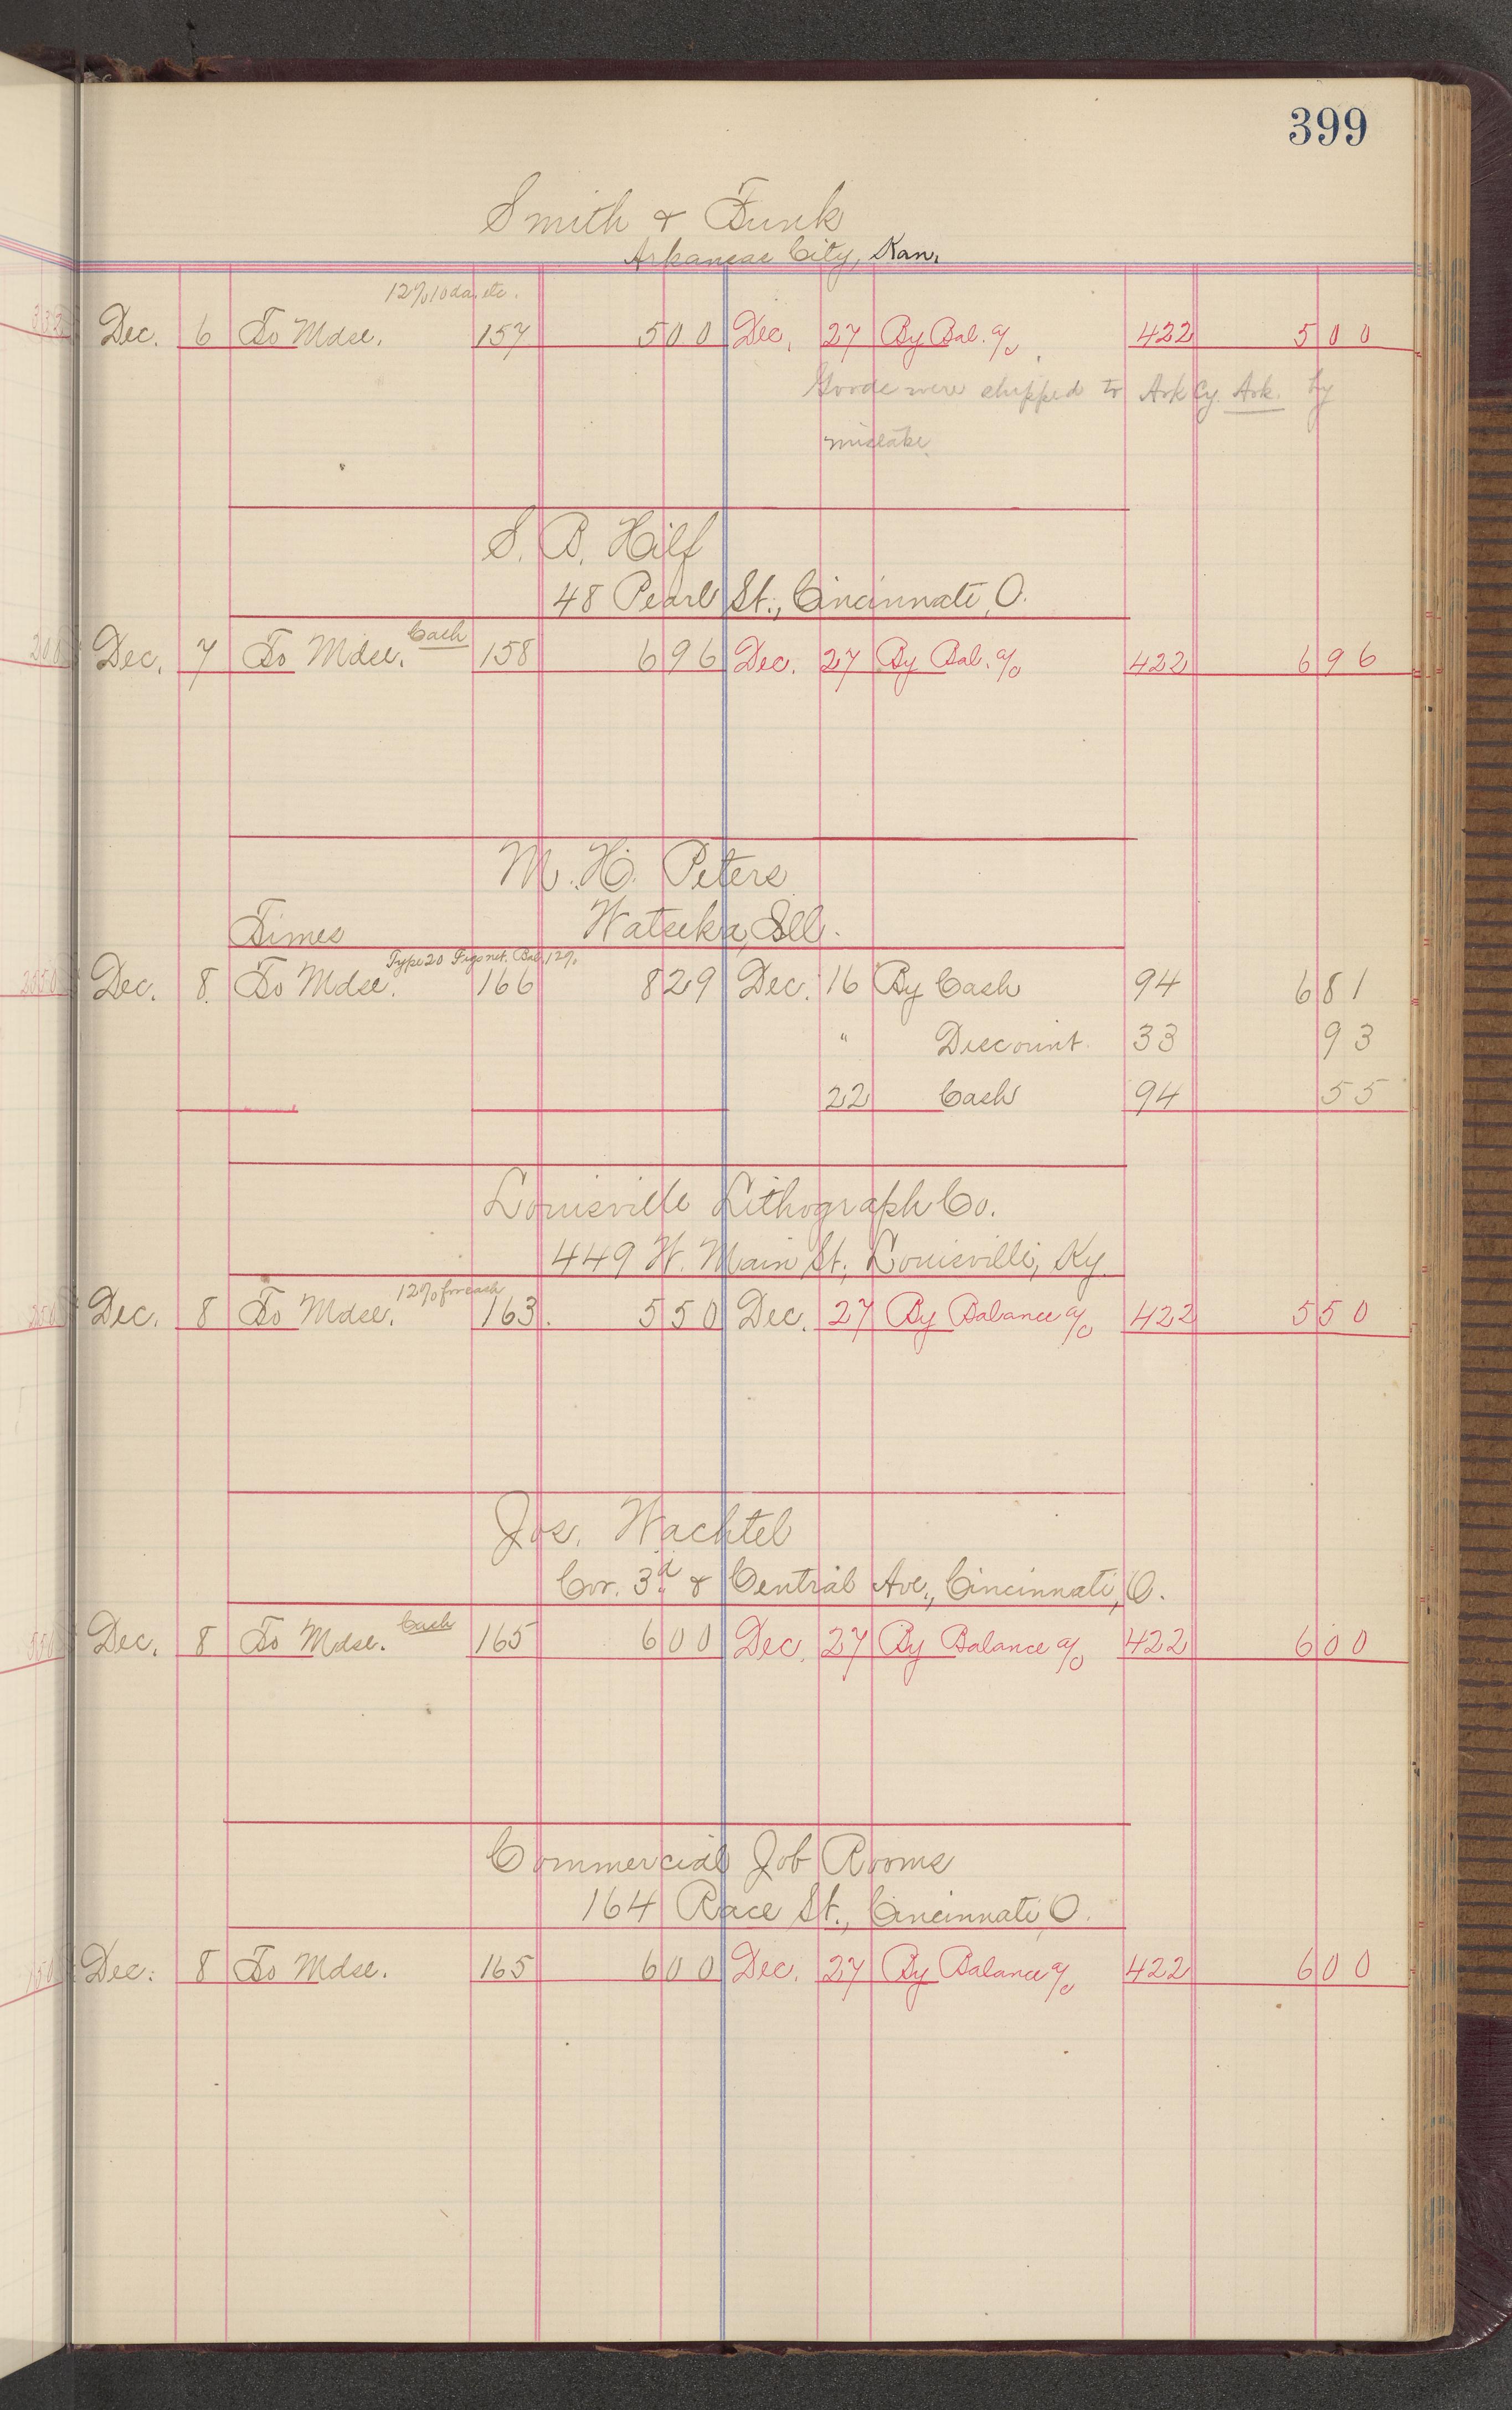 399
Smith & Funk
Arkansas City, Kan.
12% 10 da. etc.
Dec. 6 To Mdse. 157 500 Dec. 27 By Bal. a/c 422 500
Goods were shipped to Ark Cy. Ark. by
mistake
S. B. Hilf
48 Pearl St., Cincinnati, O.
Dec. 7 To Mdse. Cash 158 696 Dec. 27 By Bal. a/c 422 696
M. H. Peters
Times Watseka, Ill.
Type 20 Figs net. Bal. 12%
Dec. 8. To Mdse. 166 829 Dec. 16 By Cash 94 681
" Discount 33 93
22 Cash 94 55
Louisville Lithograph Co.
449 W. Main St., Louisville, Ky.
12% for cash
Dec. 8 To Mdse. 163. 550 Dec. 27 By Balance a/c 422 550
Jos. Wachtel
Cor. 3d & Central Ave., Cincinnati, O.
Dec. 8 To Mdse. Cash 165 600 Dec. 27 By Balance a/c 422 600
Commercial Job Rooms
164 Race St., Cincinnati, O.
Dec. 8 To Mdse. 165 600 Dec. 27 By Balance a/c 422 600